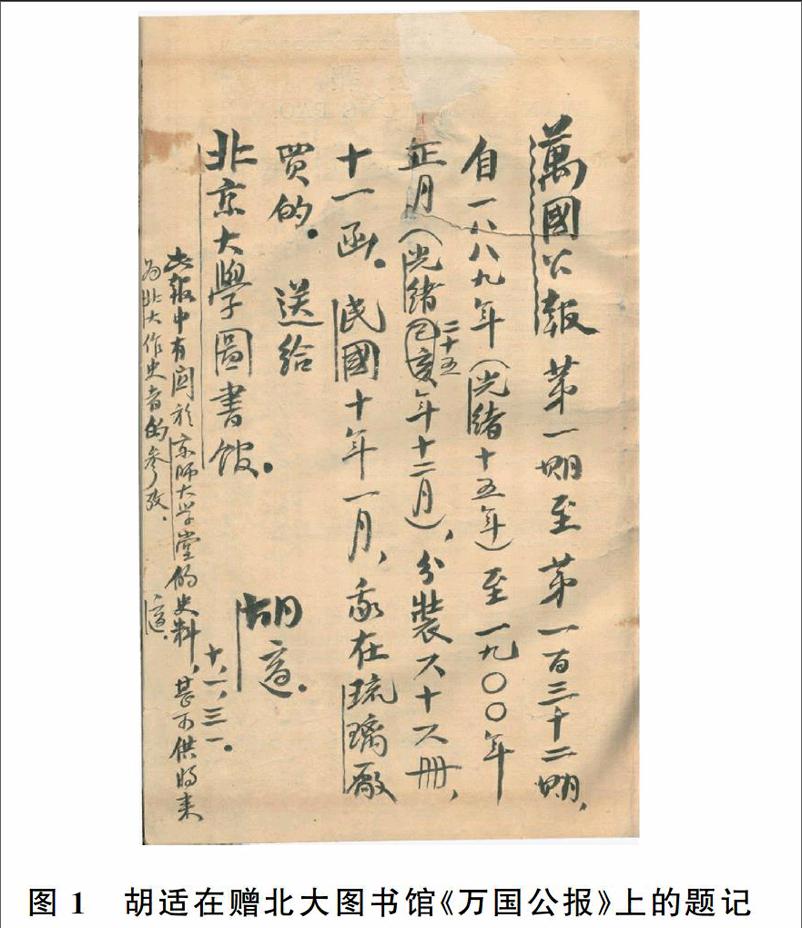 萬國公報 第一期至第一百三十二期,
自一八八九年(光緒十五年)至一九〇〇年
正月(光緒二十五己亥年十二月),分裝六十六冊,
十一函。民國十年一月,我在琉璃厰
買的。送給
北京大學圖書館。
胡適。
十,一,三一。
此報中有関於京师大学堂的史料,甚可供將来
為北大作史者的参考。適。
图 1 胡适在赠北大图书馆《万国公报》上的题记